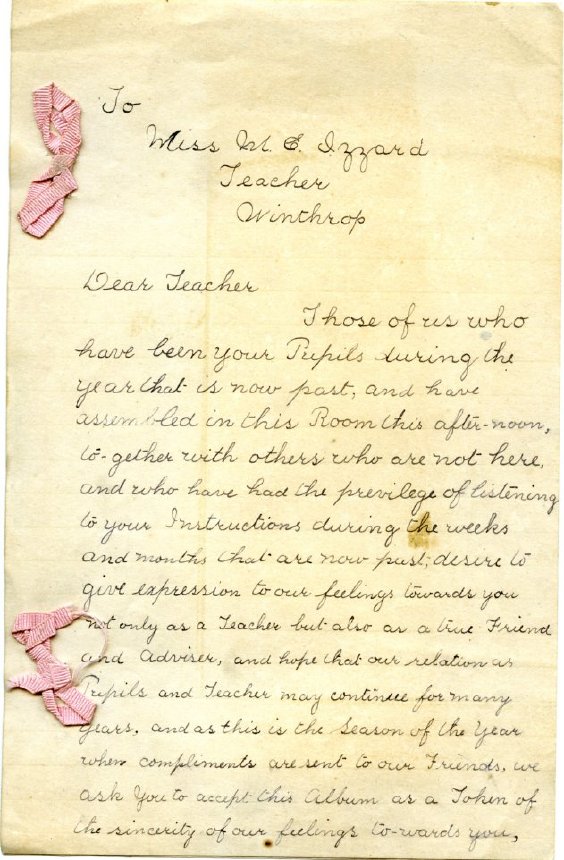 To
Miss M. E. Izzard
Teacher
Winthrop
Dear Teacher
Those of us who
have been your Pupils during the
year that is now past, and have
assembled in this Room this after-noon,
to-gether with others who are not here,
and who have had the previlege of listening
to your Instructions during the weeks
and months that are now past; desire to
give expression to our feelings towards you
not only as a Teacher but also as a true Friend
and Adviser, and hope that our relation as
Pupils and Teacher may continue for many
years, and as this is the Season of the Year
when compliments are sent to our Friends, we
ask You to accept this Album as a Token of
the sincerity of our feelings to-wards you,